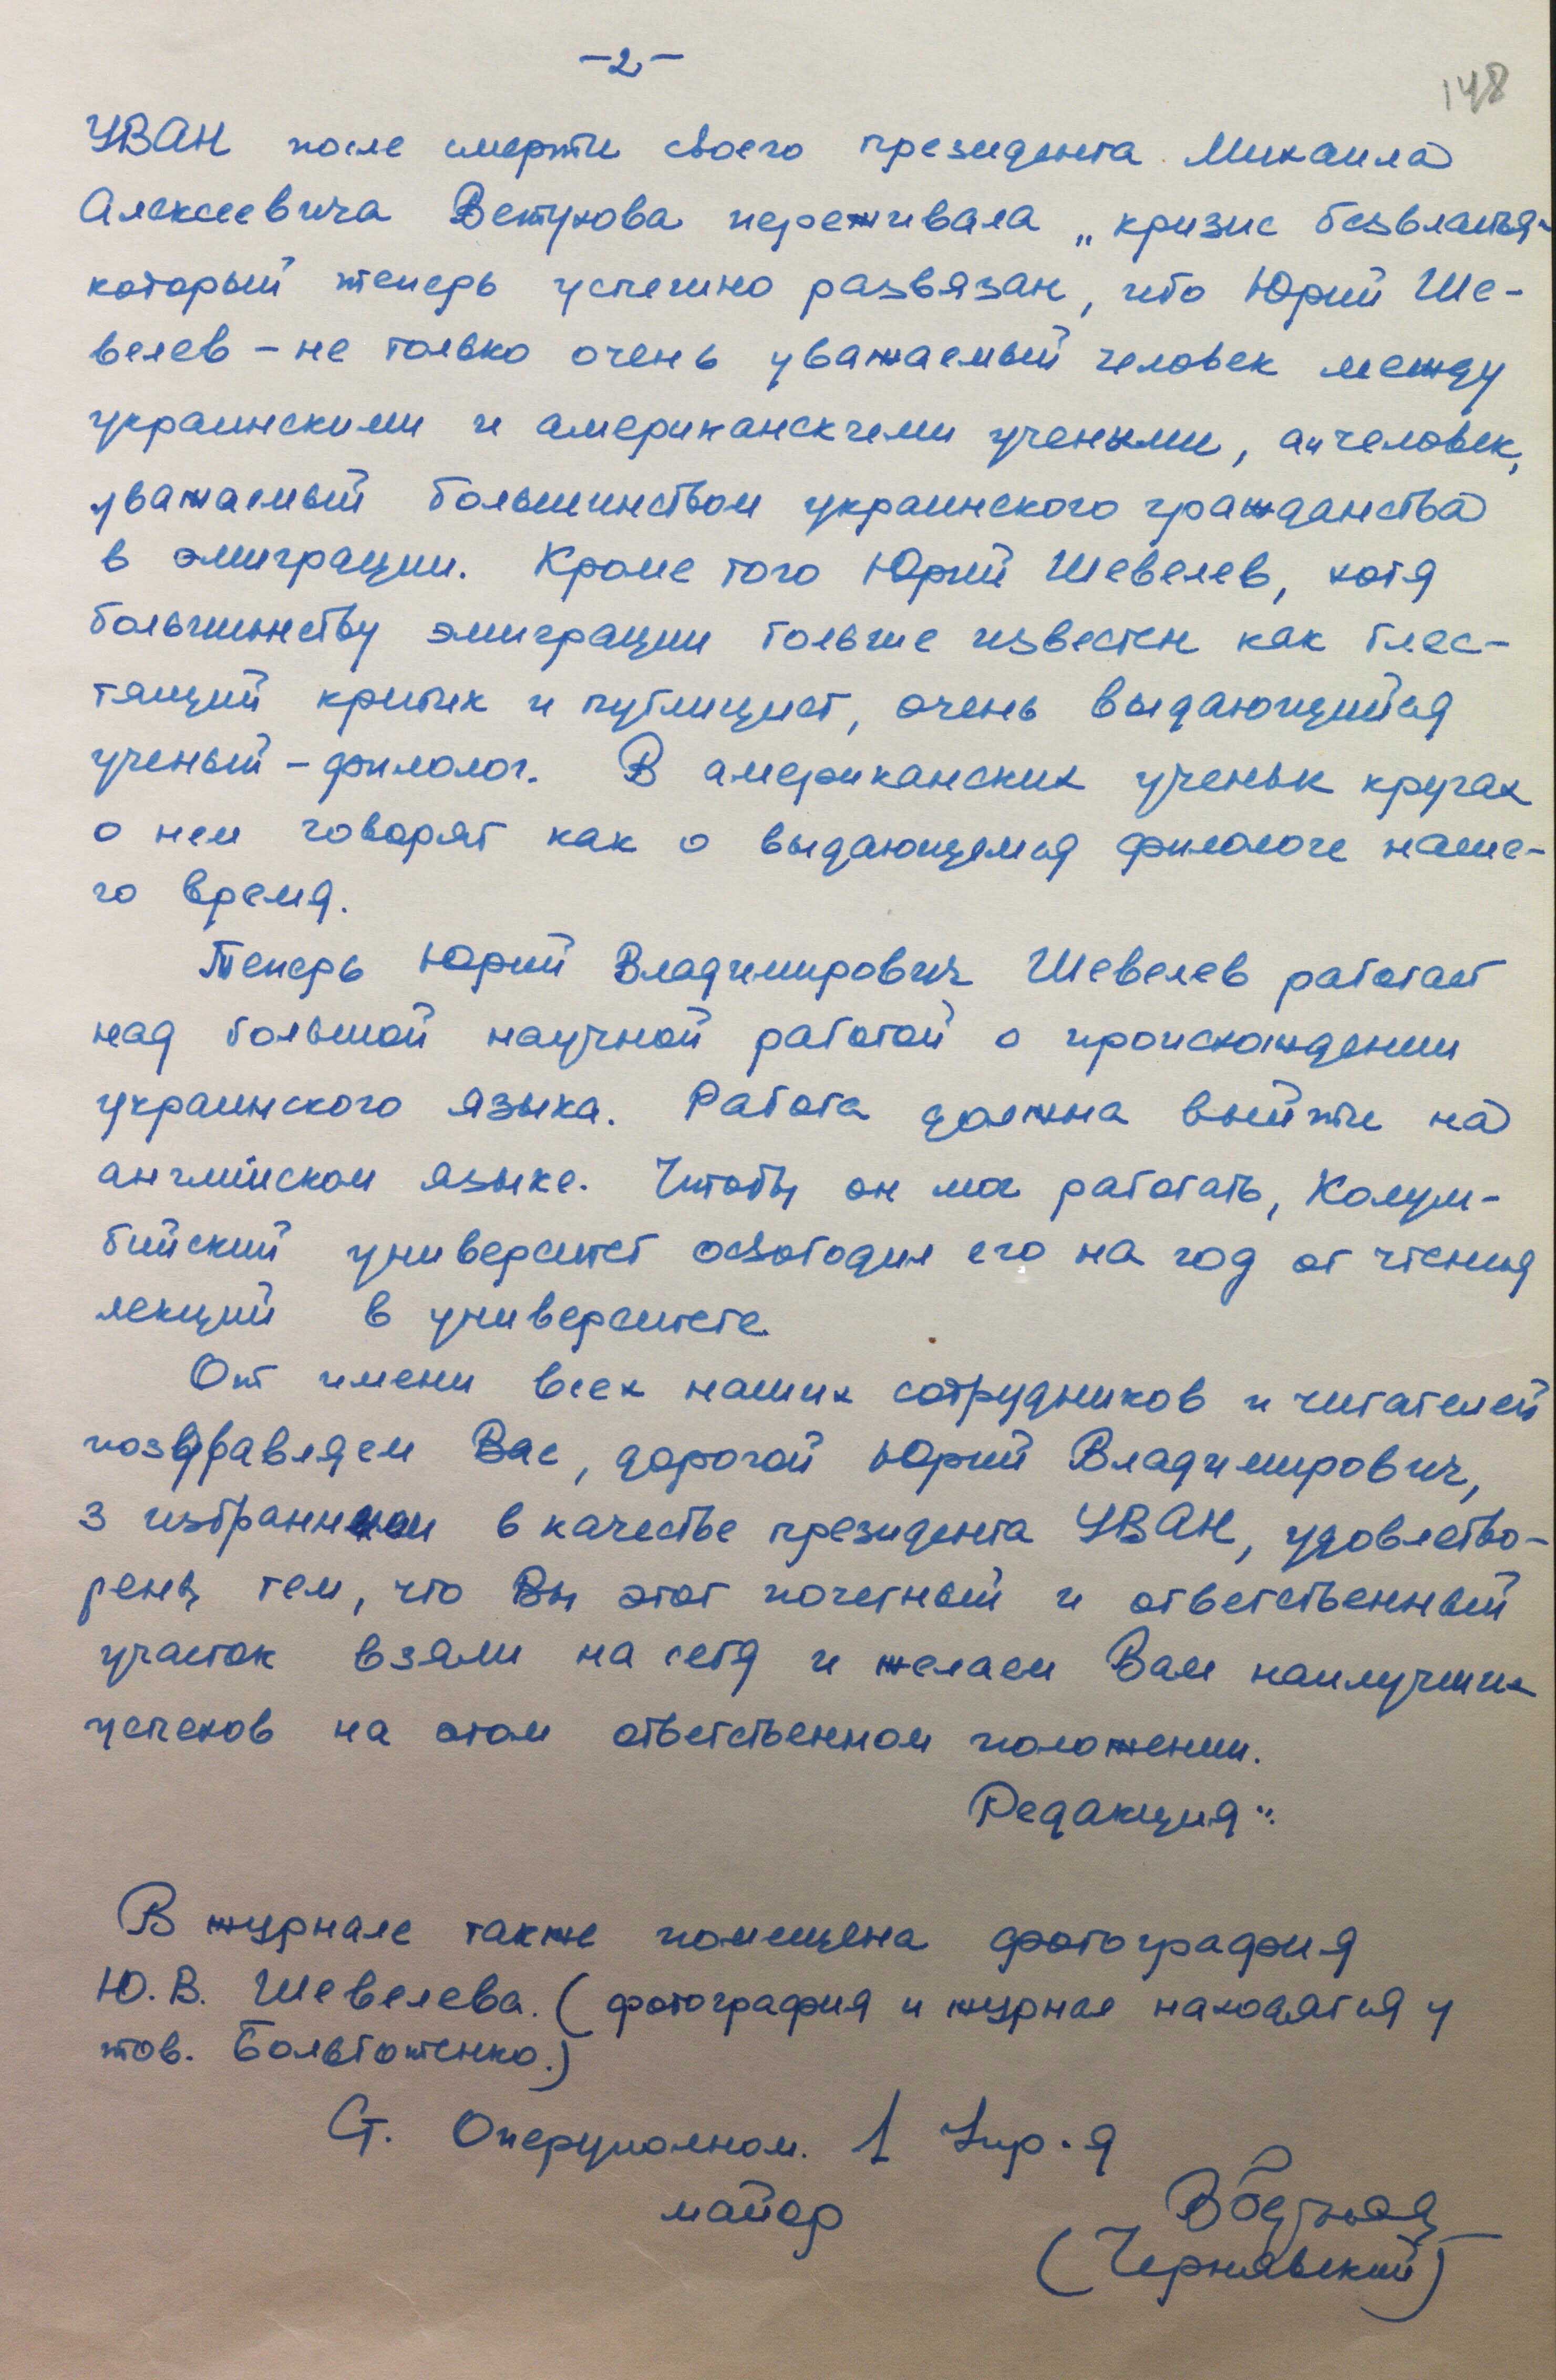 -2-
148
УВАН после смерти своего президента Михаила
Алексеевича Ветухова переживала „кризис безвластья"
который теперь успешно развязан, ибо Юрий Ше-
велев - не только очень уважаемый человек между
украинскими и американскими учеными, а и человек,
уважаемый большинством украинского гражданства
в эмиграции. Кроме того Юрий Шевелев, хотя
большинству эмиграции больше известен как блес-
тящий критик и публицист, очень выдающийся
ученый - филолог. В американских ученых кругах
о нем говорят как о выдающемся филологе наше-
го время.
Теперь Юрий Владимирович Шевелев работает
над большой научной работой о происхождении
украинского языка. Работа должна выйти на
английском языке. Чтобы он мог работать, Колум-
бийский университет освободил его на год от чтения
лекций в университете.
От имени всех наших сотрудников и читателей
поздравляем Вас, дорогой Юрий Владимирович,
з избранием в качестве президента УВАН, удовлетво-
рены тем, что Вы этот почетный и ответственный
участок взяли на себя и желаем Вам наилучших
успехов на этом ответственном положении.
Редакция".
В журнале также помещена фотография
Ю.В. Шевелева. (фотография и журнал находятся у
тов. Болбтоженко.)
Ст. Оперуполном. 1 Упр-я
майор
(Чернявский)